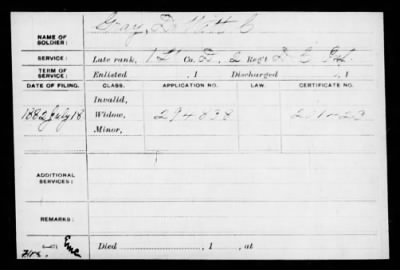 NAME OF SOLDIER: Gray, De Witt C
SERVICE: Late rank, 1 Lt Co. D, 2 Reg't
TERM OF SERVICE: Enlisted , 1 Discharged , 1
DATE OF FILING. CLASS. APPLICATION NO. LAW. CERTIFICATE NO.
Invalid,
1882 July 18 Widow, 294838
Minor,
ADDITIONAL SERVICES:
REMARKS:
Died , 1 , at